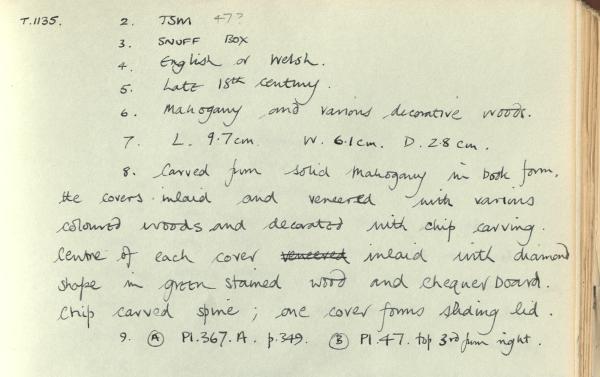 T.1135. 2. TSM 47?
3. SNUFF BOX
4. English or Welsh.
5. Late 18th century.
6. Mahogany and various decorative woods.
7. L. 9.7cm. W. 6.1cm. D. 2.8cm.
8. Carved from solid mahogany in book form,
the covers inlaid and veneered with various
coloured woods and decorated with chip carving.
Centre of each cover veneered inlaid with diamond
shape in green stained wood and chequer board.
Chip carved spine; one cover forms sliding lid.
9. Ⓐ Pl.367.A. p.349. Ⓑ Pl.47. top 3rd from right.